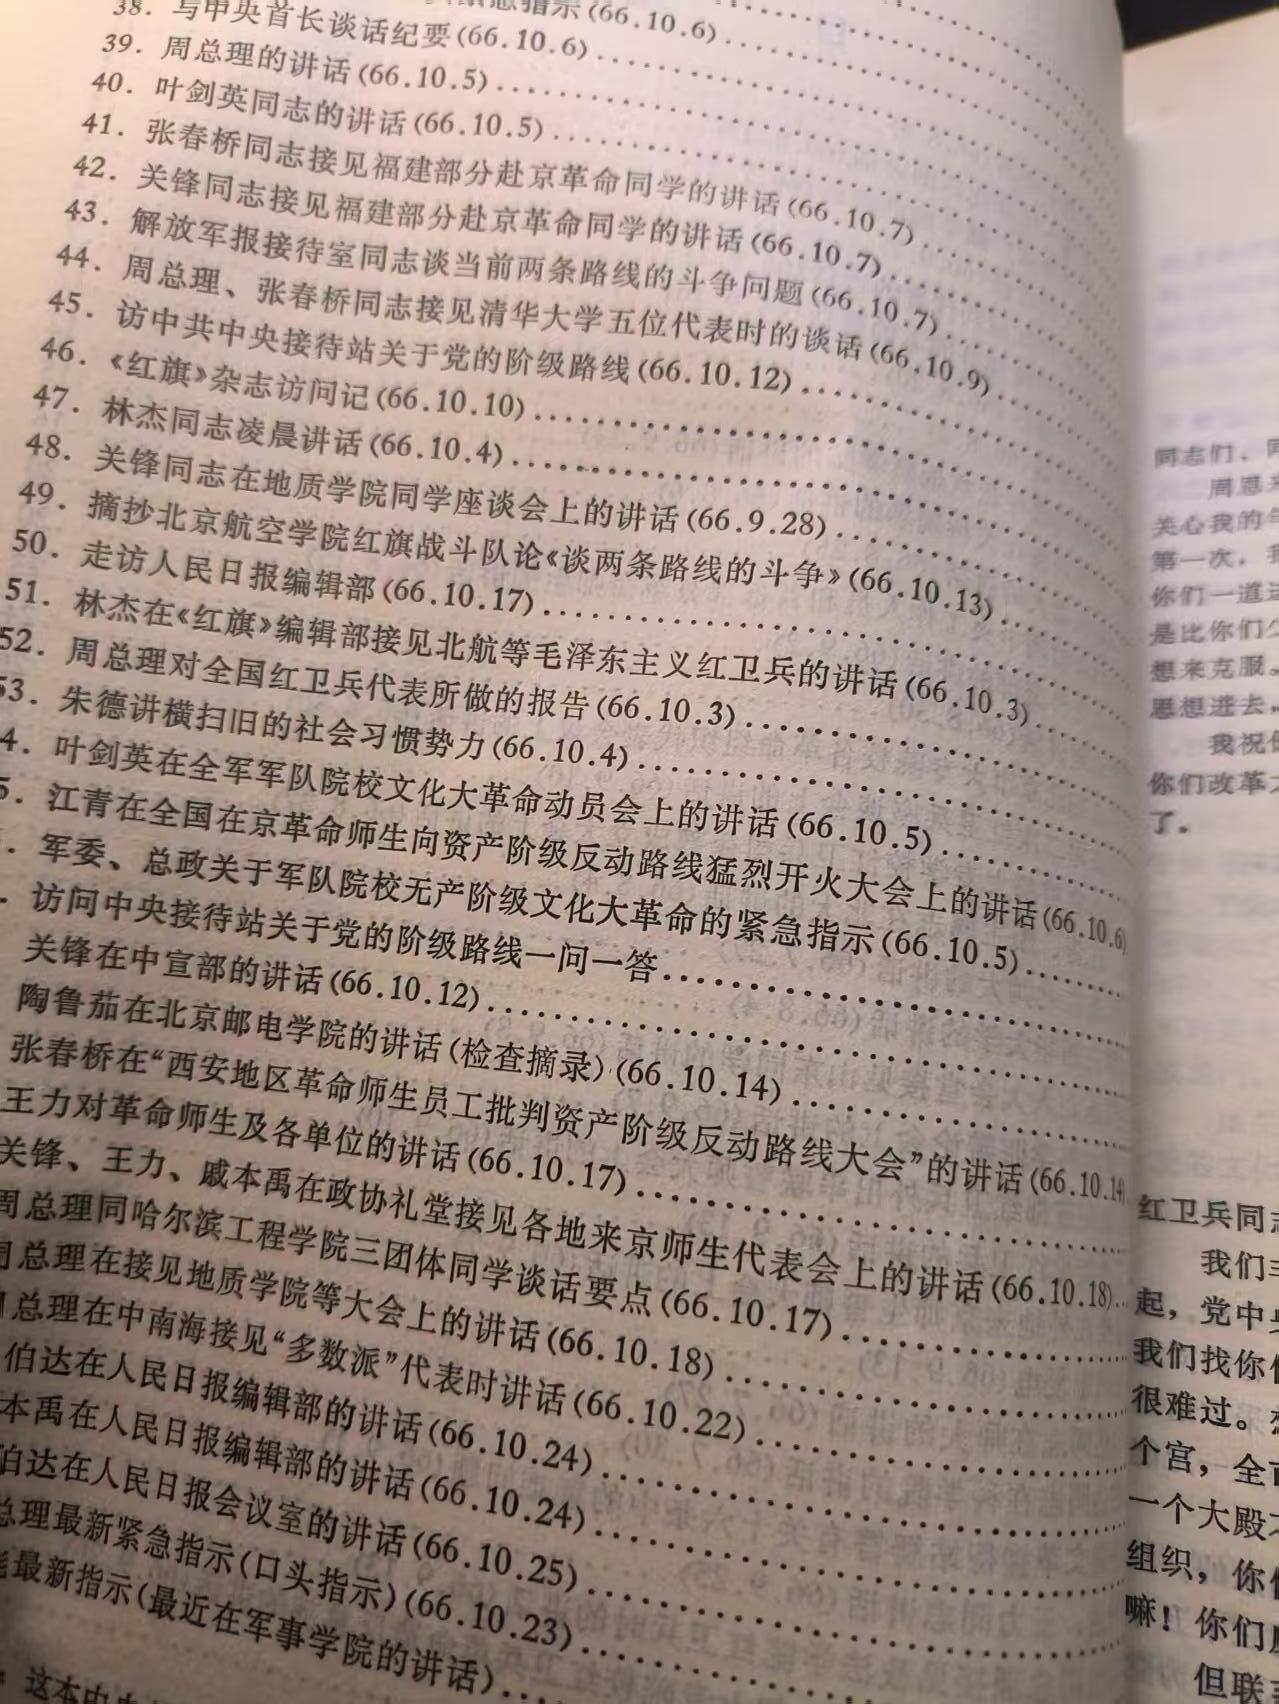 急指示(66.10.6)
38. 与中央首长谈话纪要(66.10.6)
39. 周总理的讲话(66.10.5)
40. 叶剑英同志的讲话(66.10.5)
41. 张春桥同志接见福建部分赴京革命同学的讲话(66.10.7)
42. 关锋同志接见福建部分赴京革命同学的讲话(66.10.7)
43. 解放军报接待室同志谈当前两条路线的斗争问题(66.10.7)
44. 周总理、张春桥同志接见清华大学五位代表时的谈话(66.10.9)
45. 访中共中央接待站关于党的阶级路线(66.10.12)
46. 《红旗》杂志访问记(66.10.10)
47. 林杰同志凌晨讲话(66.10.4)
48. 关锋同志在地质学院同学座谈会上的讲话(66.9.28)
49. 摘抄北京航空学院红旗战斗队论《谈两条路线的斗争》(66.10.13)
50. 走访人民日报编辑部(66.10.17)
51. 林杰在《红旗》编辑部接见北航等毛泽东主义红卫兵的讲话(66.10.3)
52. 周总理对全国红卫兵代表所做的报告(66.10.3)
53. 朱德讲横扫旧的社会习惯势力(66.10.4)
4. 叶剑英在全军军队院校文化大革命动员会上的讲话(66.10.5)
5. 江青在全国在京革命师生向资产阶级反动路线猛烈开火大会上的讲话(66.10.6)
. 军委、总政关于军队院校无产阶级文化大革命的紧急指示(66.10.5)
. 访问中央接待站关于党的阶级路线一问一答
关锋在中宣部的讲话(66.10.12)
陶鲁茄在北京邮电学院的讲话(检查摘录)(66.10.14)
张春桥在“西安地区革命师生员工批判资产阶级反动路线大会”的讲话(66.10.14)
王力对革命师生及各单位的讲话(66.10.17)
关锋、王力、戚本禹在政协礼堂接见各地来京师生代表会上的讲话(66.10.18)
周总理同哈尔滨工程学院三团体同学谈话要点(66.10.17)
周总理在接见地质学院等大会上的讲话(66.10.18)
总理在中南海接见“多数派”代表时讲话(66.10.22)
伯达在人民日报编辑部的讲话(66.10.24)
本禹在人民日报编辑部的讲话(66.10.24)
伯达在人民日报会议室的讲话(66.10.25)
总理最新紧急指示(口头指示)(66.10.23)
最新指示(最近在军事学院的讲话)
这本中央
同志们、同
周恩来
关心我的
第一次，我
你们一道
是比你们
想来克服。
思想进去，
我祝
你们改革
了。
红卫兵同志
我们
起，党中央
我们找你们
很难过。
个宫，全
一个大殿
组织，你们
嘛！你们
但联